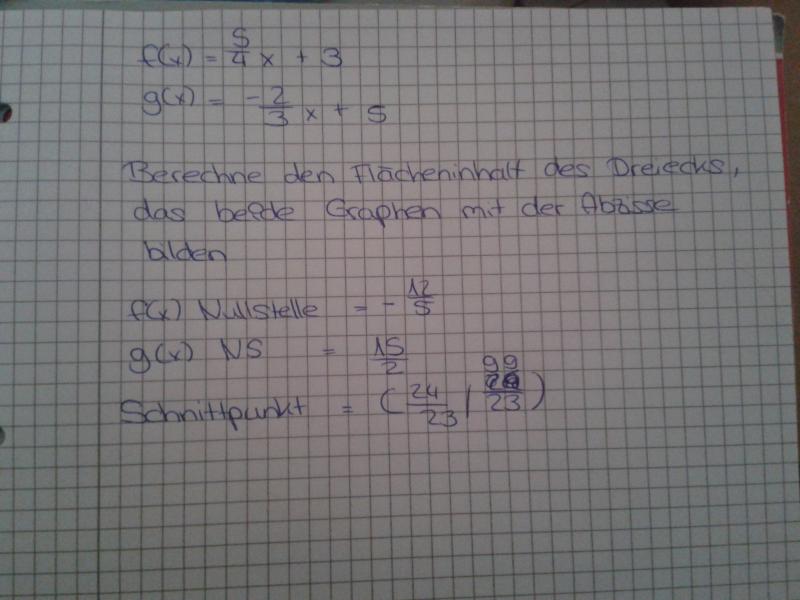 f(x) = 5/4 x + 3
g(x) = -2/3 x + 5
Berechne den Flächeninhalt des Dreiecks,
das beide Graphen mit der Abzisse
bilden
f(x) Nullstelle = - 12/5
g(x) NS = 15/2
Schnittpunkt = ( 24/23 | 99/23 )